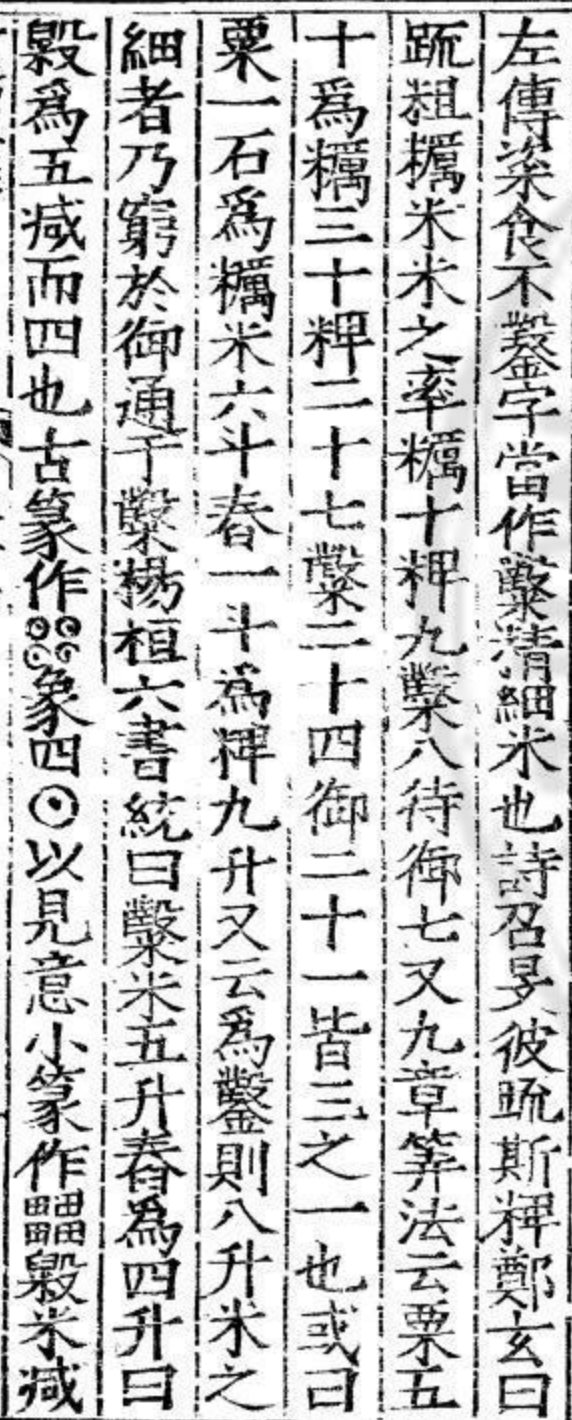 左傳粢食不鑿字當作糳精細米也詩召旻彼䟽斯粺鄭玄曰
䟽粗糲米米之率糲十粺九糳八待御七又九章筭法云粟五
十爲糲三十粺二十七糳二十四御二十一皆三之一也或曰
粟一石爲糲米六斗舂一斗爲粺九升又云爲鑿則八升米之
細者乃窮於御通于糳楊桓六書統曰糳米五升舂爲四升曰
毇爲五减而四也古篆作象四⊙以見意小篆作毇米减